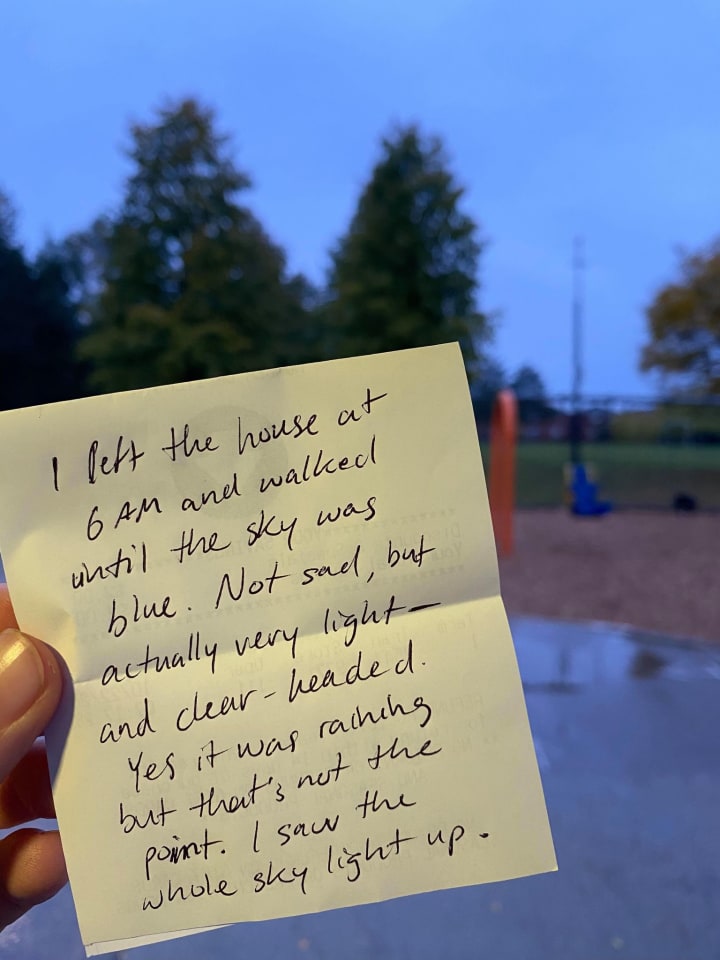 I left the house at
6 AM and walked
until the sky was
blue. Not sad, but
actually very light—
and clear-headed.
Yes it was raining
but that's not the
point. I saw the
whole sky light up.